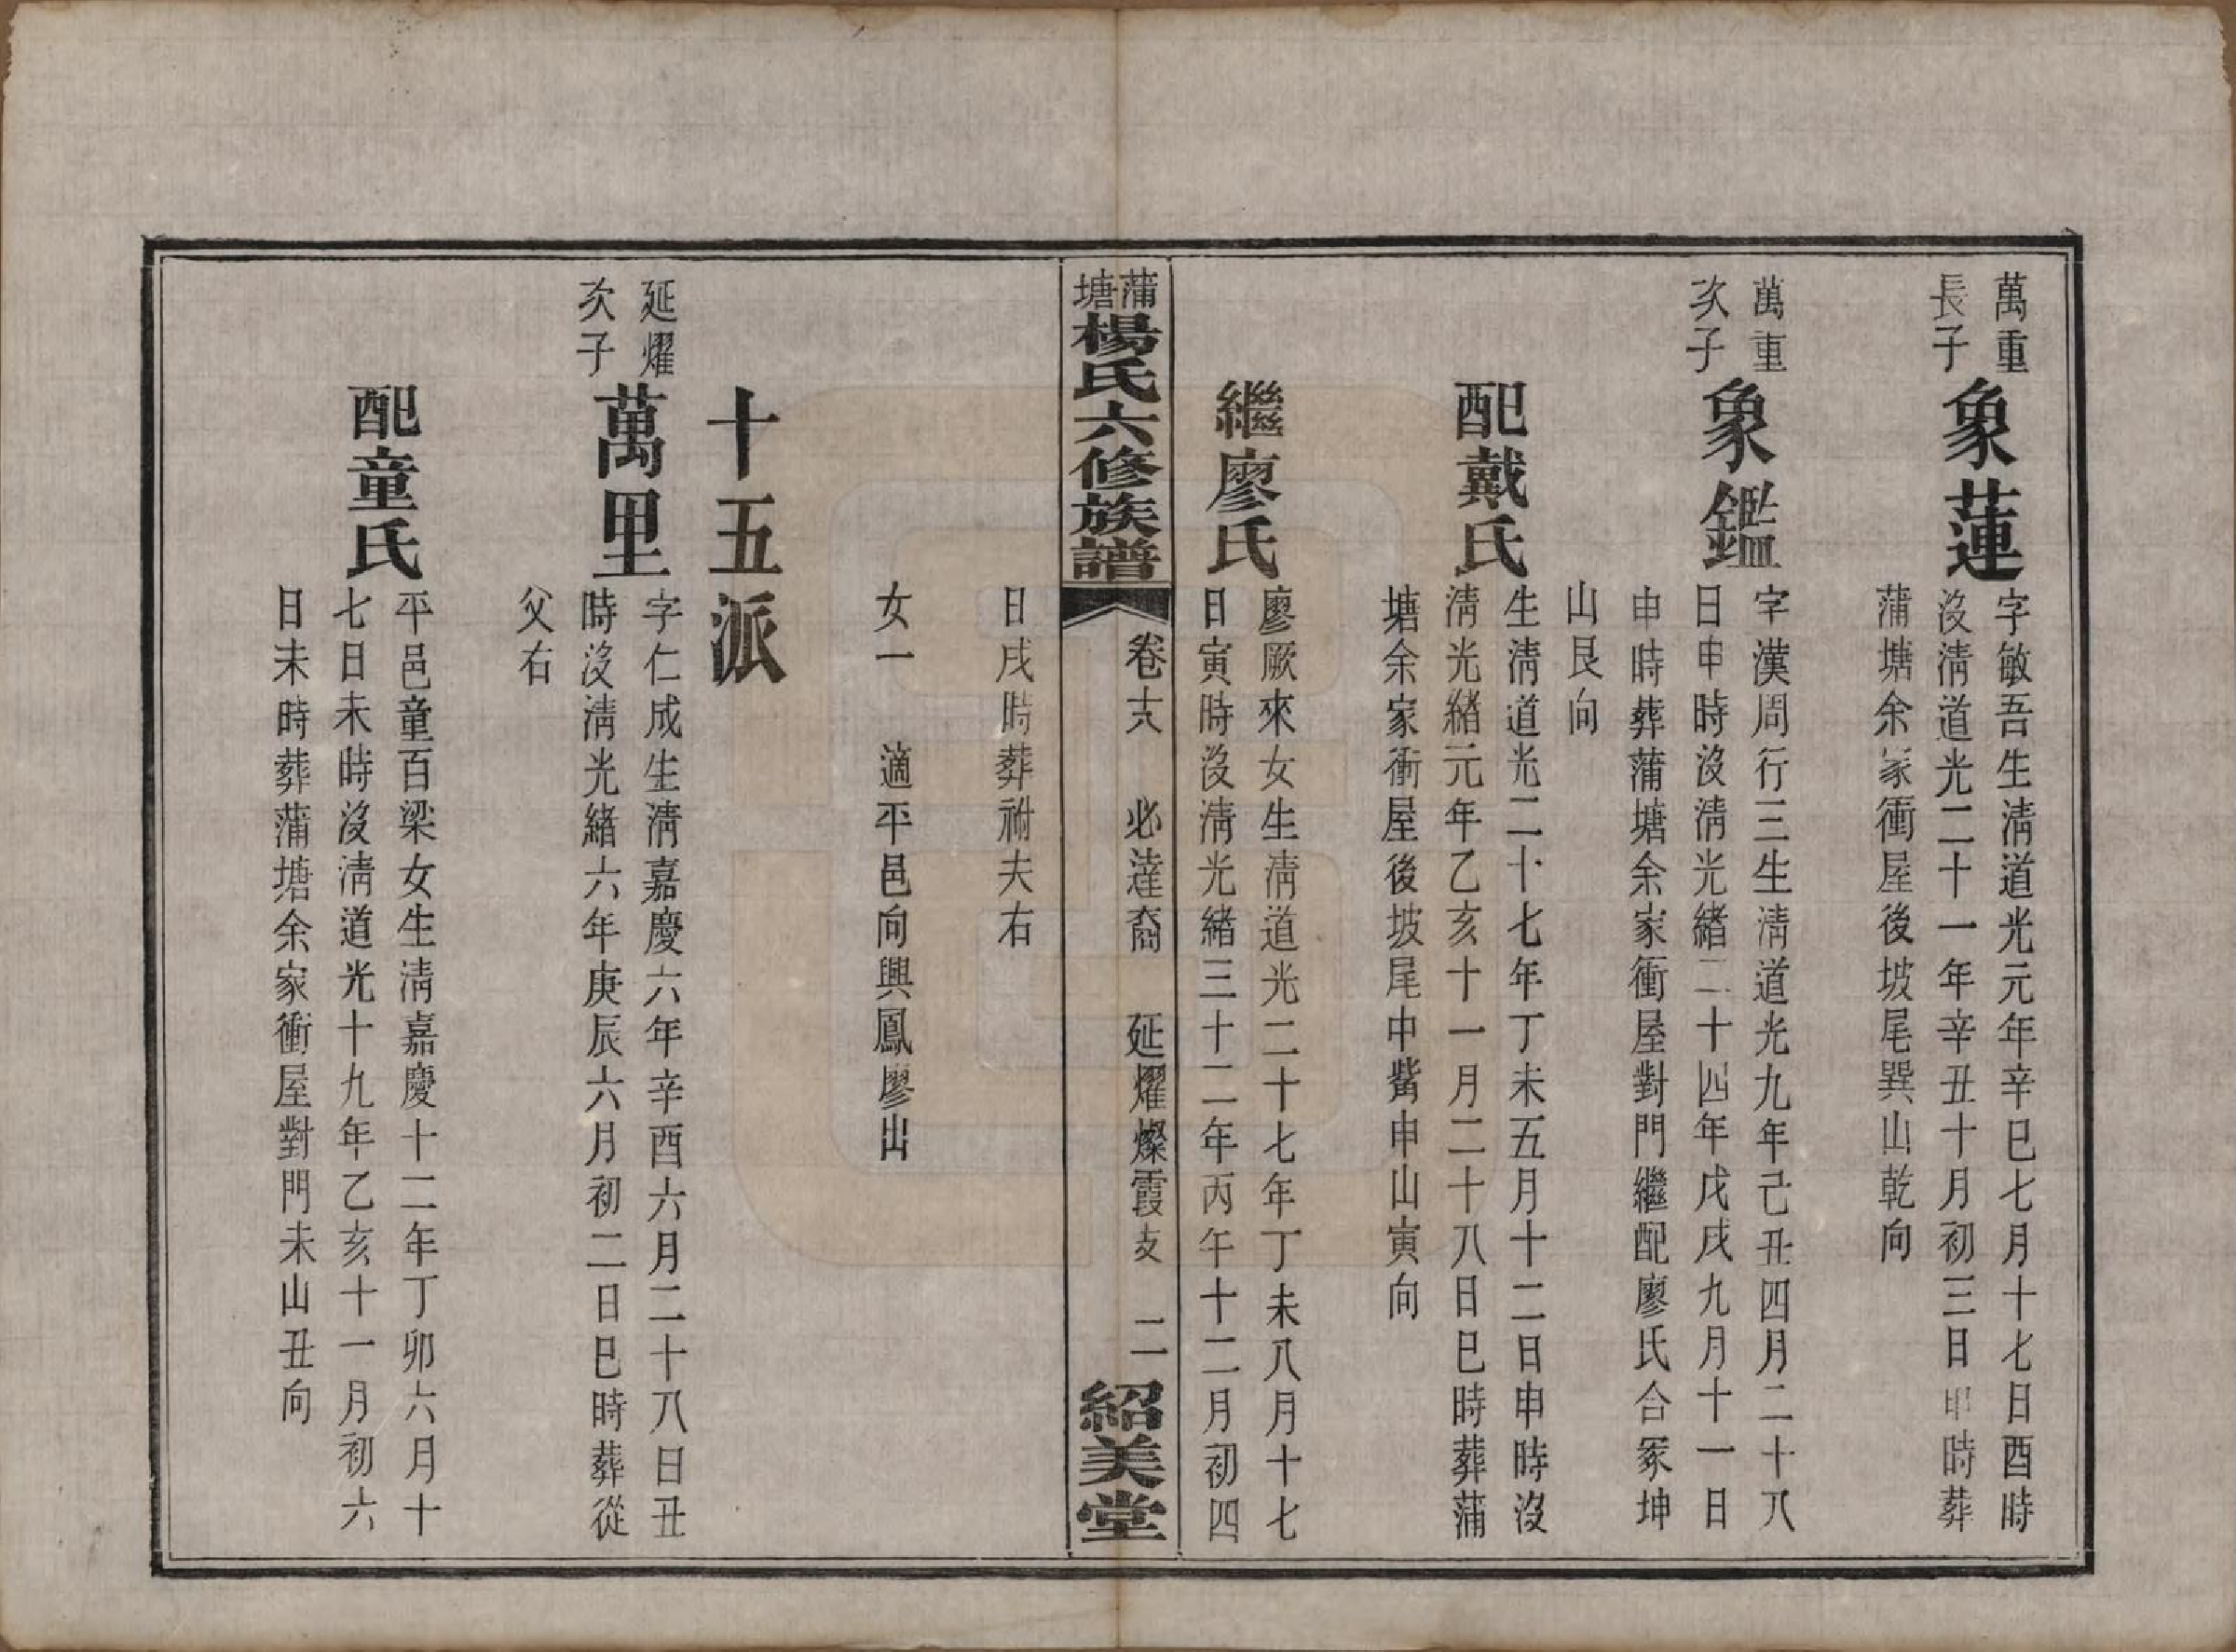 萬重
長子
象蓮
字敏吾生淸道光元年辛巳七月十七日酉時
沒淸道光二十一年辛丑十月初三日申時葬
蒲塘余家衝屋後坡尾巽山乾向
萬重
次子
象鑑
字漢周行三生淸道光九年己丑四月二十八
日申時沒淸光緒二十四年戊戌九月十一日
申時葬蒲塘余家衝屋對門繼配廖氏合冢坤
山艮向
配戴氏
生淸道光二十七年丁未五月十二日申時沒
淸光緒元年乙亥十一月二十八日巳時葬蒲
塘余家衝屋後坡尾中觜申山寅向
繼廖氏
廖厥來女生淸道光二十七年丁未八月十七
日寅時沒淸光緒三十二年丙午十二月初四
蒲塘楊氏六修族譜
卷十六 必達裔 延燿燦霞支 二
紹美堂
日戌時葬祔夫右
女一 適平邑向興鳳廖出
十五派
延燿
次子
萬里
字仁成生淸嘉慶六年辛酉六月二十八日丑
時沒淸光緒六年庚辰六月初二日巳時葬從
父右
配童氏
平邑童百梁女生淸嘉慶十二年丁卯六月十
七日未時沒淸道光十九年乙亥十一月初六
日未時葬蒲塘余家衝屋對門未山丑向